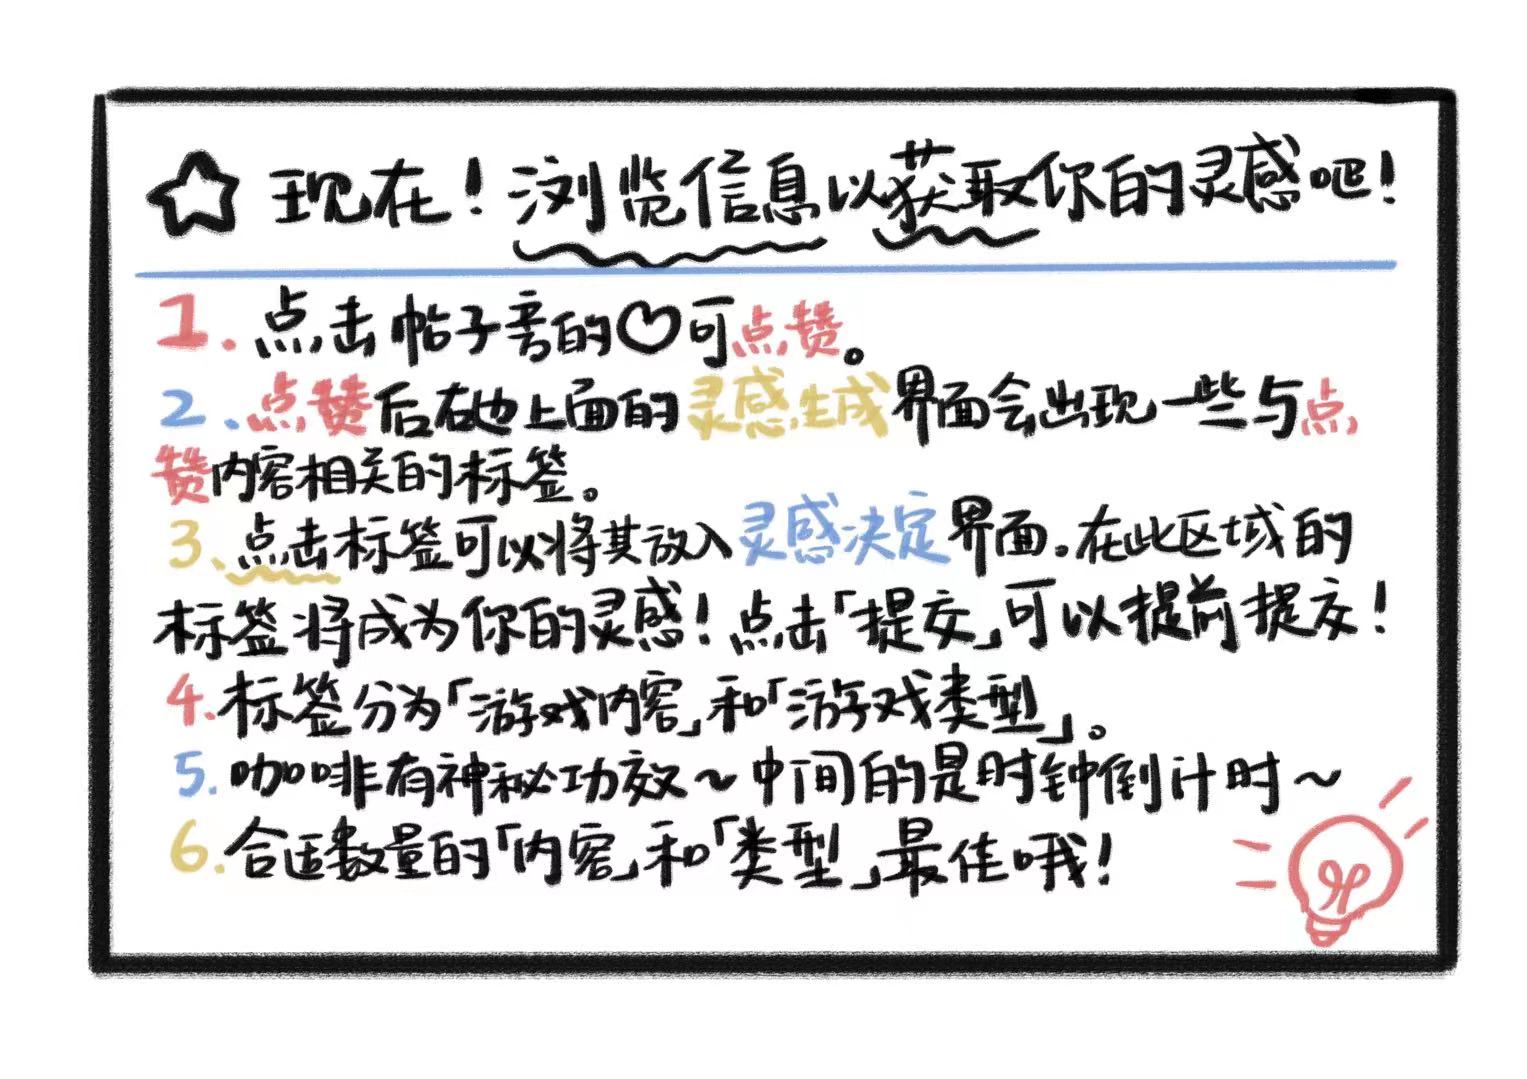 现在！浏览信息以获取你的灵感吧！
1.点击帖子旁的♡可点赞。
2.点赞后右边上面的灵感生成界面会出现一些与点
赞内容相关的标签。
3、点击标签可以将其放入灵感决定界面。在此区域的
标签将成为你的灵感！点击「提交」可以提前提交！
4.标签分为「游戏内容」和「游戏类型」。
5.咖啡有神秘功效~中间的是时钟倒计时~
6.合适数量的「内容」和「类型」最佳哦！